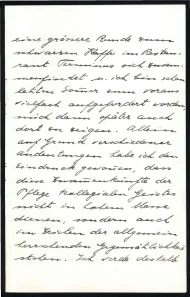 eine grössere Runde zum
schwarzen Kaffee im Restau-
rant Terminus sich zusam-
menfindet u. ich bin schon
letzten Sommer zum voraus
vielfach aufgefordert worden
mich dann später auch
dort zu zeigen. Allein
auf Grund verschiedener
Andeutungen habe ich den
Eindruck gewonnen, dass
diese Zusammenkünfte der
Pflege kollegialen Geistes
nicht in hohem Masse
dienen, sondern auch
im Zeichen der allgemein
herrschenden Gegensätzlichkeit
stehen. Ich werde deshalb